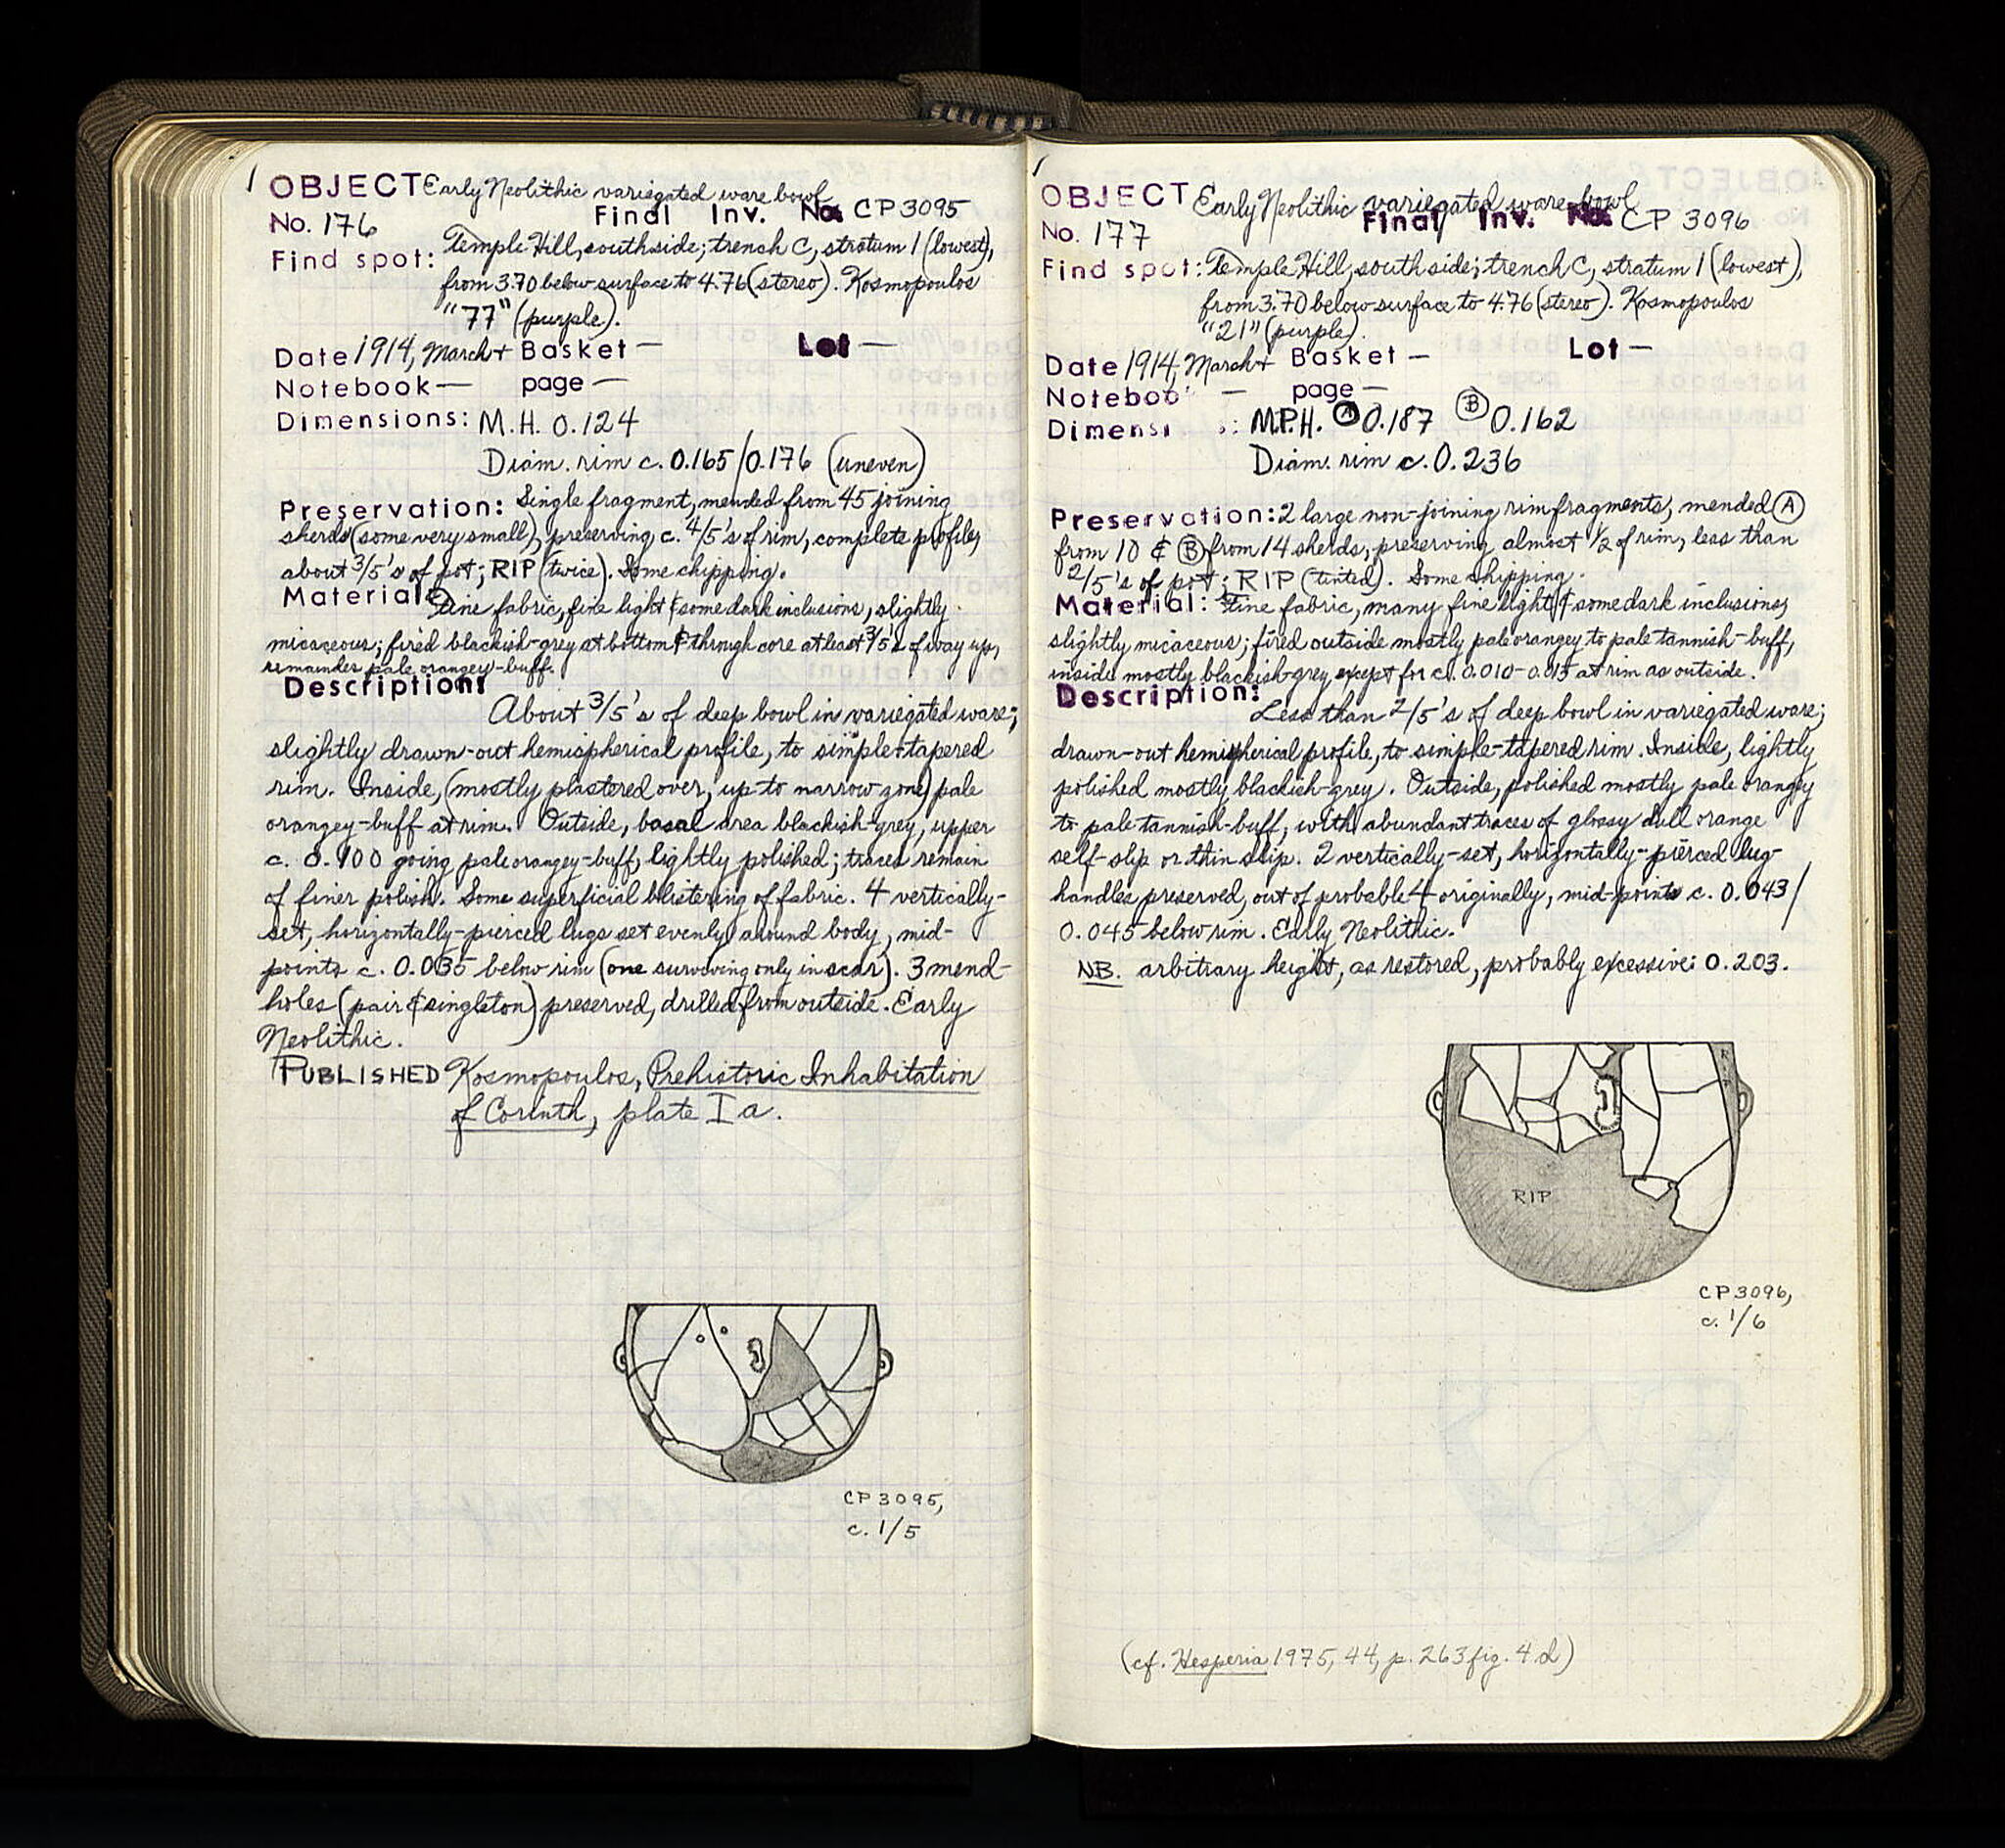 OBJECT Early Neolithic variegated ware bowl
No. 176 Final Inv. No. CP 3095
Find spot: Temple Hill, south side; trench C, stratum 1 (lowest),
from 3.70 below surface to 4.76 (stereo). Kosmopoulos
"77" (purple).
Date 1914, March+ Basket — Lot —
Notebook — page —
Dimensions: M.H. 0.124
Diam. rim c. 0.165/0.176 (uneven)
Preservation: Single fragment, mended from 45 joining
sherds (some very small), preserving c. 4/5's of rim, complete profile,
about 3/5's of pot; RIP (twice). Some chipping.
Material: Fine fabric, fine light & some dark inclusions, slightly
micaceous; fired blackish-grey at bottom & through core at least 3/5's of way up,
remainder pale orangey-buff.
Description:
About 3/5's of deep bowl in variegated ware;
slightly drawn-out hemispherical profile, to simple-tapered
rim. Inside, (mostly plastered over, up to narrow zone) pale
orangey-buff at rim. Outside, basal area blackish-grey, upper
c. 0.100 going pale orangey-buff, lightly polished; traces remain
of finer polish. Some superficial blistering of fabric. 4 vertically-
set, horizontally-pierced lugs set evenly around body, mid-
points c. 0.035 below rim (one surviving only in scar). 3 mend-
holes (pair & singleton) preserved, drilled from outside. Early
Neolithic.
PUBLISHED Kosmopoulos, Prehistoric Inhabitation
of Corinth, plate I a.
CP 3095,
c. 1/5
OBJECT Early Neolithic variegated ware bowl
No. 177 Final Inv. No. CP 3096
Find spot: Temple Hill, south side; trench C, stratum 1 (lowest),
from 3.70 below surface to 4.76 (stereo). Kosmopoulos
"21" (purple).
Date 1914, March+ Basket — Lot —
Noteboo — page —
Dimensi : M.P.H. Ⓐ 0.187 Ⓑ 0.162
Diam. rim c. 0.236
Preservation: 2 large non-joining rim fragments, mended Ⓐ
from 10 & Ⓑ from 14 sherds, preserving almost 1/2 of rim, less than
2/5's of pot; RIP (tinted). Some chipping.
Material: Fine fabric, many fine light & some dark inclusions,
slightly micaceous; fired outside mostly pale orangey to pale tannish-buff,
inside mostly blackish-grey except for c. 0.010-0.015 at rim as outside.
Description:
Less than 2/5's of deep bowl in variegated ware;
drawn-out hemispherical profile, to simple-tapered rim. Inside, lightly
polished mostly blackish-grey. Outside, polished mostly pale orangey
to pale tannish-buff, with abundant traces of glossy dull orange
self-slip or thin slip. 2 vertically-set, horizontally-pierced lug-
handles preserved, out of probable 4 originally, mid-points c. 0.043/
0.045 below rim. Early Neolithic.
NB. arbitrary height, as restored, probably excessive: 0.203.
R
RIP
CP 3096,
c. 1/6
(cf. Hesperia 1975, 44, p. 263 fig. 4 d)